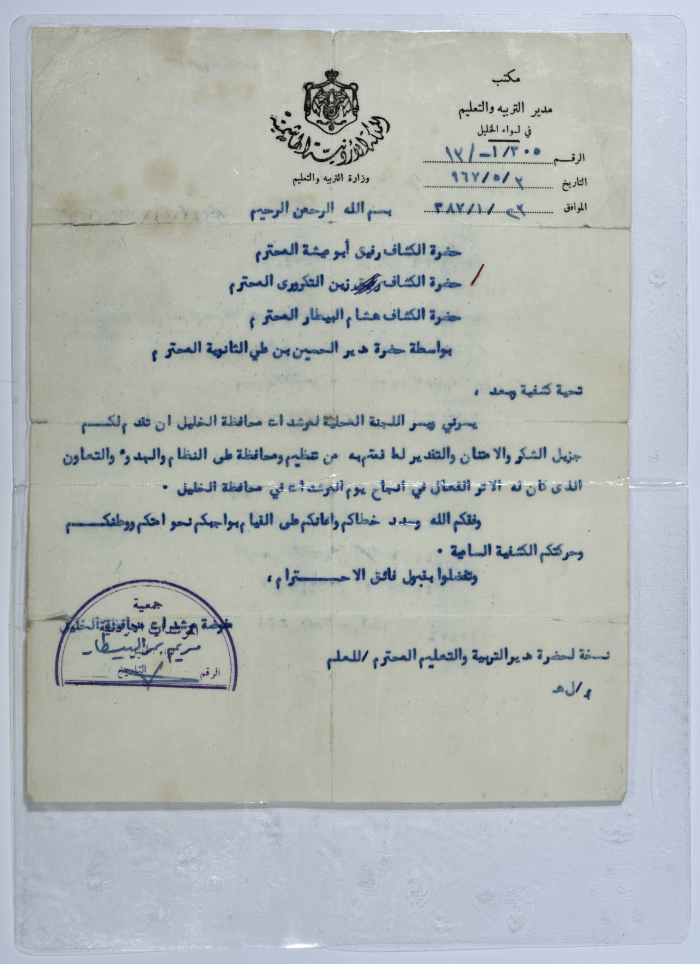 مكتب
مدير التربيه والتعليم
في لواء الخليل
المملكة الأردنية الهاشمية
وزارة التربيه والتعليم
الرقم ١٣/-١/٣٠٥
التاريخ ٩٦٧/٥/٢
الموافق ٣٨٧/١/٢٢
بسم الله الرحمن الرحيم
حضرة الكشاف رفيق أبو عيشة المحترم
حضرة الكشاف زين التكرورى المحترم
حضرة الكشاف هشام البيطار المحترم
بواسطة حضرة مدير الحسين بن علي الثانوية المحترم
تحية كشفية وبعد ،
يسرني ويسر اللجنة المحلية لمرشدات محافظة الخليل ان تقدم لكم
جزيل الشكر والامتنان والتقدير لما قمتم به من تنظيم ومحافظة على النظام والهدوء والتعاون
الذى كان له الاثر الفعال في انجاح يوم المرشدات في محافظة الخليل ٠
وفقكم الله وسدد خطاكم واعانكم على القيام بواجبكم نحو امتكم ووطنكم
وحركتكم الكشفية السامية ٠
وتفضلوا بقبول فائق الاحترام ،
جمعية
مفوضة مرشدات محافظة الخليل
مريم البيطار
الرقم التاريخ
نسخة لحضرة مدير التربية والتعليم المحترم /للعلم
م/ل ه